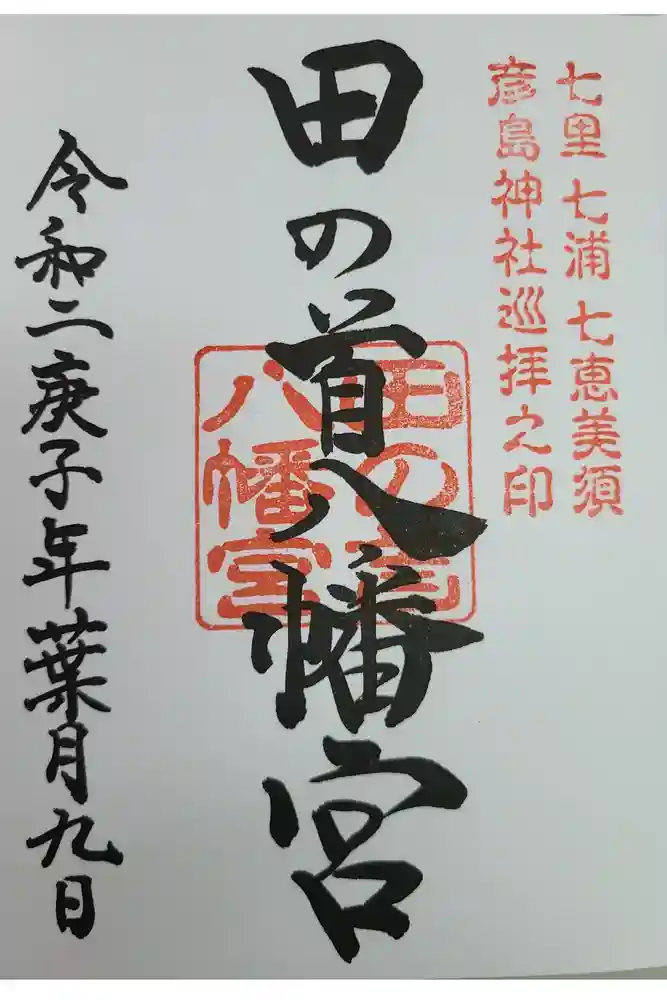 七里七浦七恵美須
彦島神社巡拝之印
田の首八幡宮
田の首
八幡宮
令和二庚子年葉月九日